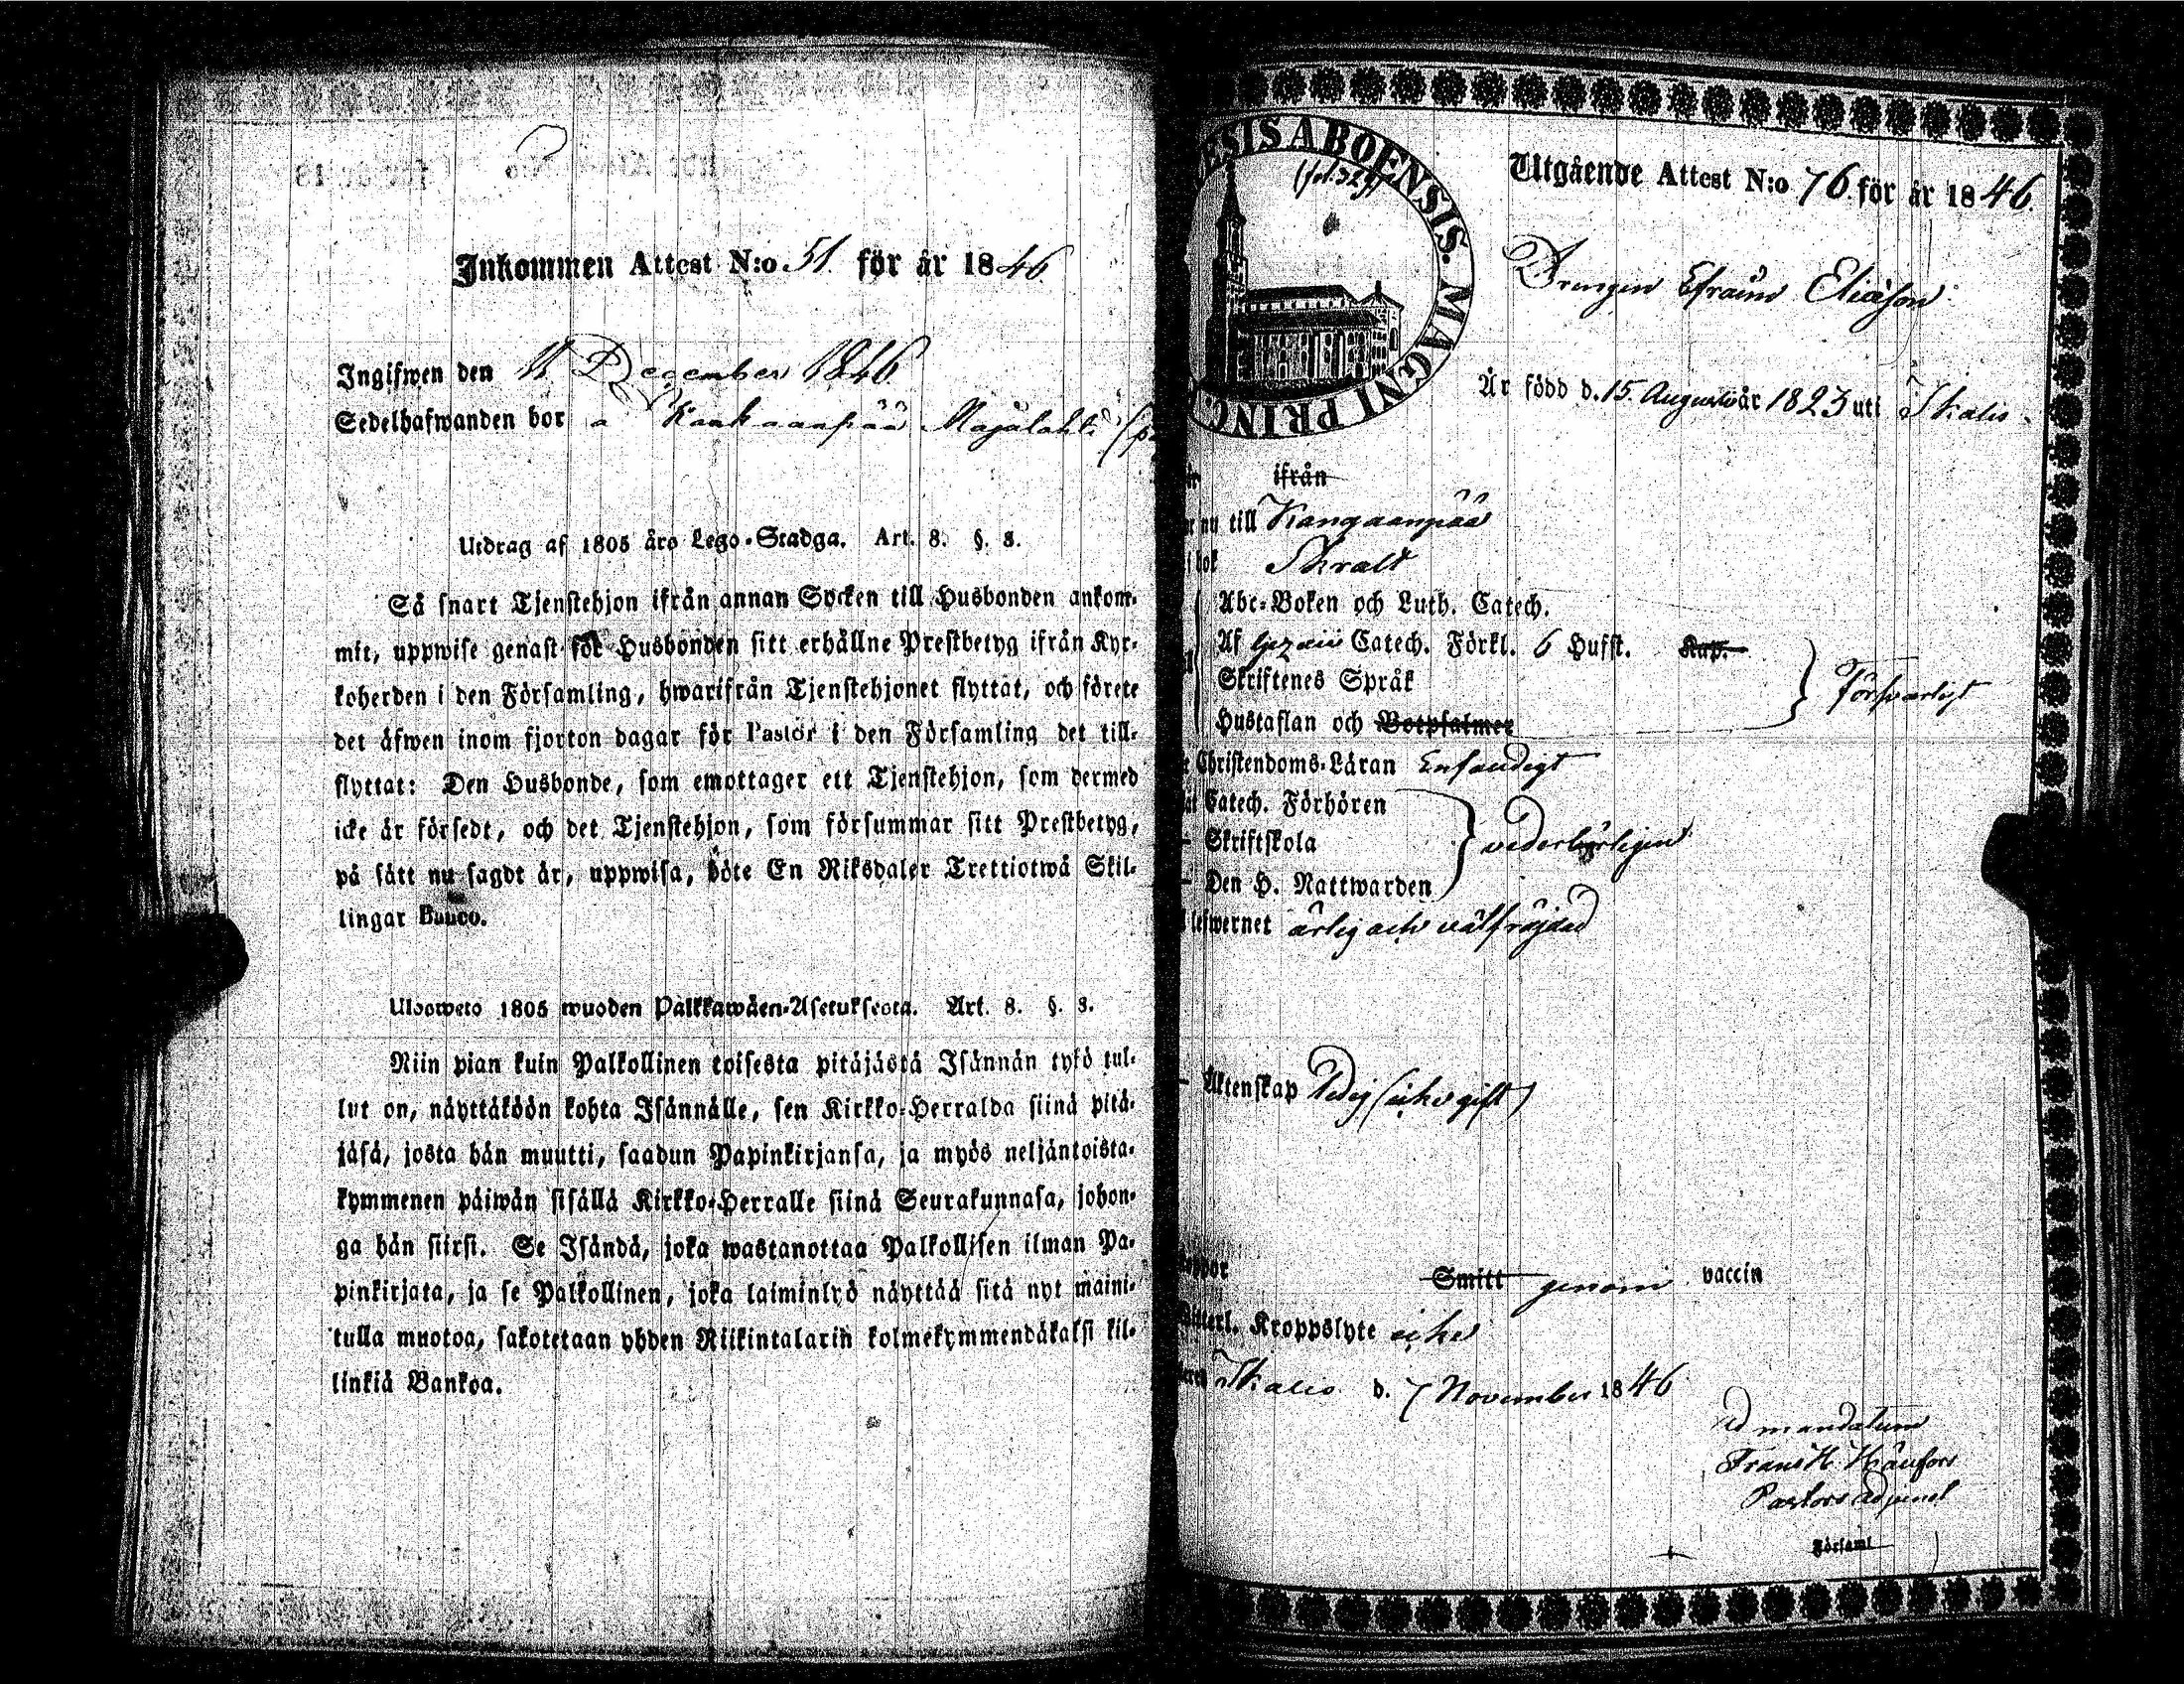 Inkommen Attest N:o 51. för år 1846
Ingifwen den 11 December 1846
Sedelhafwanden bor a Kankaanpää Majalahti
Utdrag af 1805 års Lego-Stadga. Art. 8. §. 3.
Så snart Tjenstehjon ifrån annan Socken till Husbonden ankom-
mit, uppwise genast för Husbonden sitt erhållne Prestbetyg ifrån Kyr-
koherden i den Församling, hwarifrån Tjenstehjonet flyttat, och förete
det äfwen inom fjorton dagar för Pastor i den Församling det till-
flyttat: Den Husbonde, som emottager ett Tjenstehjon, som dermed
icke är försedt, och det Tjenstehjon, som försummar sitt Prestbetyg,
på sätt nu sagdt är, uppwisa, böte En Riksdaler Trettiotwå Skil-
lingar Banco.
Ulosweto 1805 wuoden Palkkawäen-Asetuksesta. Art. 8. §. 3.
Niin pian kuin Palkollinen toisesta pitäjästä Isännän tykö tul-
lut on, näyttäköön kohta Isännälle, sen Kirkko-Herralda siinä pitä-
jäsä, josta hän muutti, saadun Papinkirjansa, ja myös neljäntoista-
kymmenen päiwän sisällä Kirkko-Herralle siinä Seurakunnasa, johon-
ga hän siirsi. Se Isändä, joka wastanottaa Palkollisen ilman Pa-
pinkirjata, ja se Palkollinen, joka laiminlyö näyttää sitä nyt maini-
tulla muotoa, sakotetaan yhden Riikintalarin kolmekymmendäkaksi kil-
linkiä Bankoa.
ESIS ABOENSIS. MAGNI PRINC.
Utgående Attest N:o 76. för år 1846.
Drengen Efraim Eliasson
Är född d. 15 Augusti år 1823 uti Ikalis
ifrån
nu till Kangaanpää
bok Skralt
Abc-Boken och Luth. Catech.
Af Catech. Förkl. 6 Hufst. Kap.
Skriftenes Språk
Försvarligt
Hustaflan och Botpsalmer
Christendoms-Läran Enfaldigt
Catech. Förhören
Skriftskola
vederbörligen
Den H. Nattwarden
lefwernet ärlig och välfräjdad
Äktenskap Ledig (icke gift)
Smitt genom vaccin
Kroppslyte icke
Ikalis d. 7 November 1846
Ad mandatum
Frans H.
Pastors adjunct
Församl